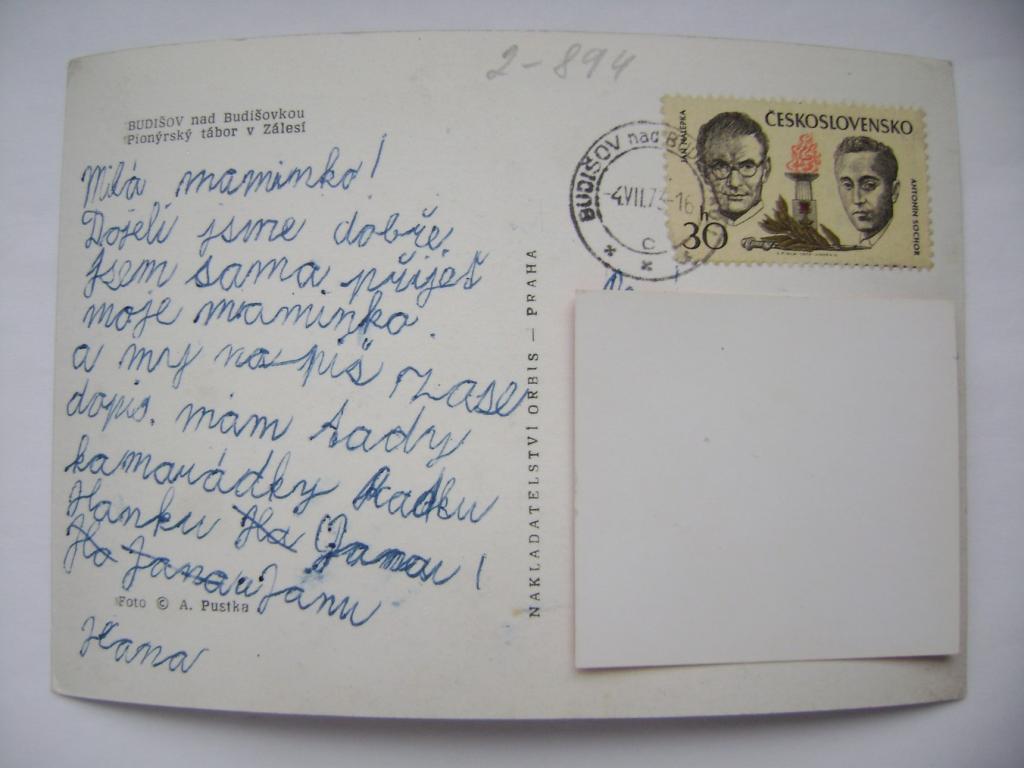 2-894
BUDIŠOV nad Budišovkou
Pionýrský tábor v Zálesí
ČESKOSLOVENSKO
JAN NÁLEPKA
ANTONÍN SOCHOR
30
h
BUDIŠOV nad BUD
-4.VII.73-16
c
Milá maminko!
Dojeli jsme dobře.
Jsem sama přijeť
moje maminko.
a my na piš zase
dopis. mám tady
kamarádky Radku
Hanku Ha Janau!
Ha Janau Janu
Hana
Foto © A. Pustka
NAKLADATELSTVÍ ORBIS — PRAHA